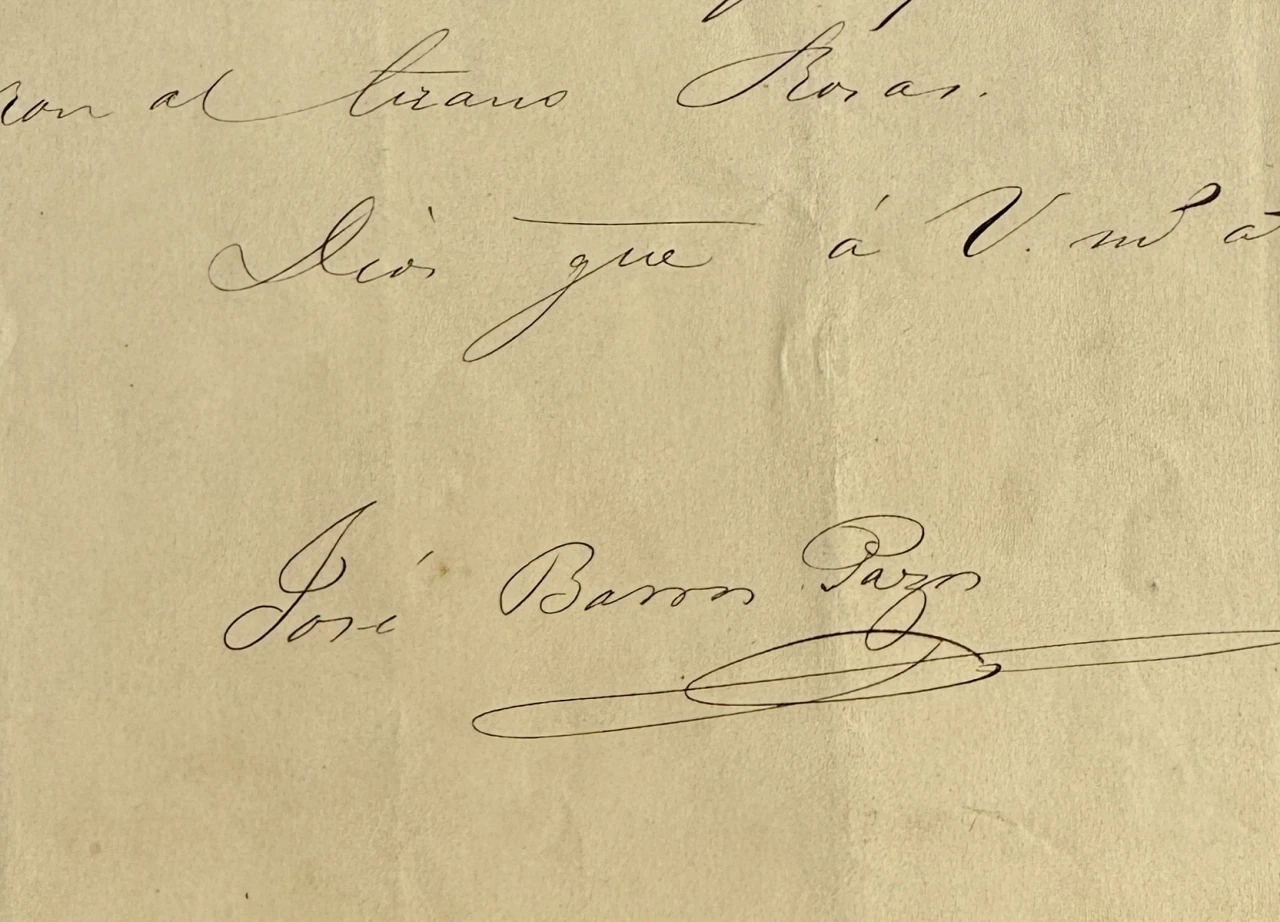 ron al tirano Rosas.
Dios gue á V. ms a
José Barros Pazos